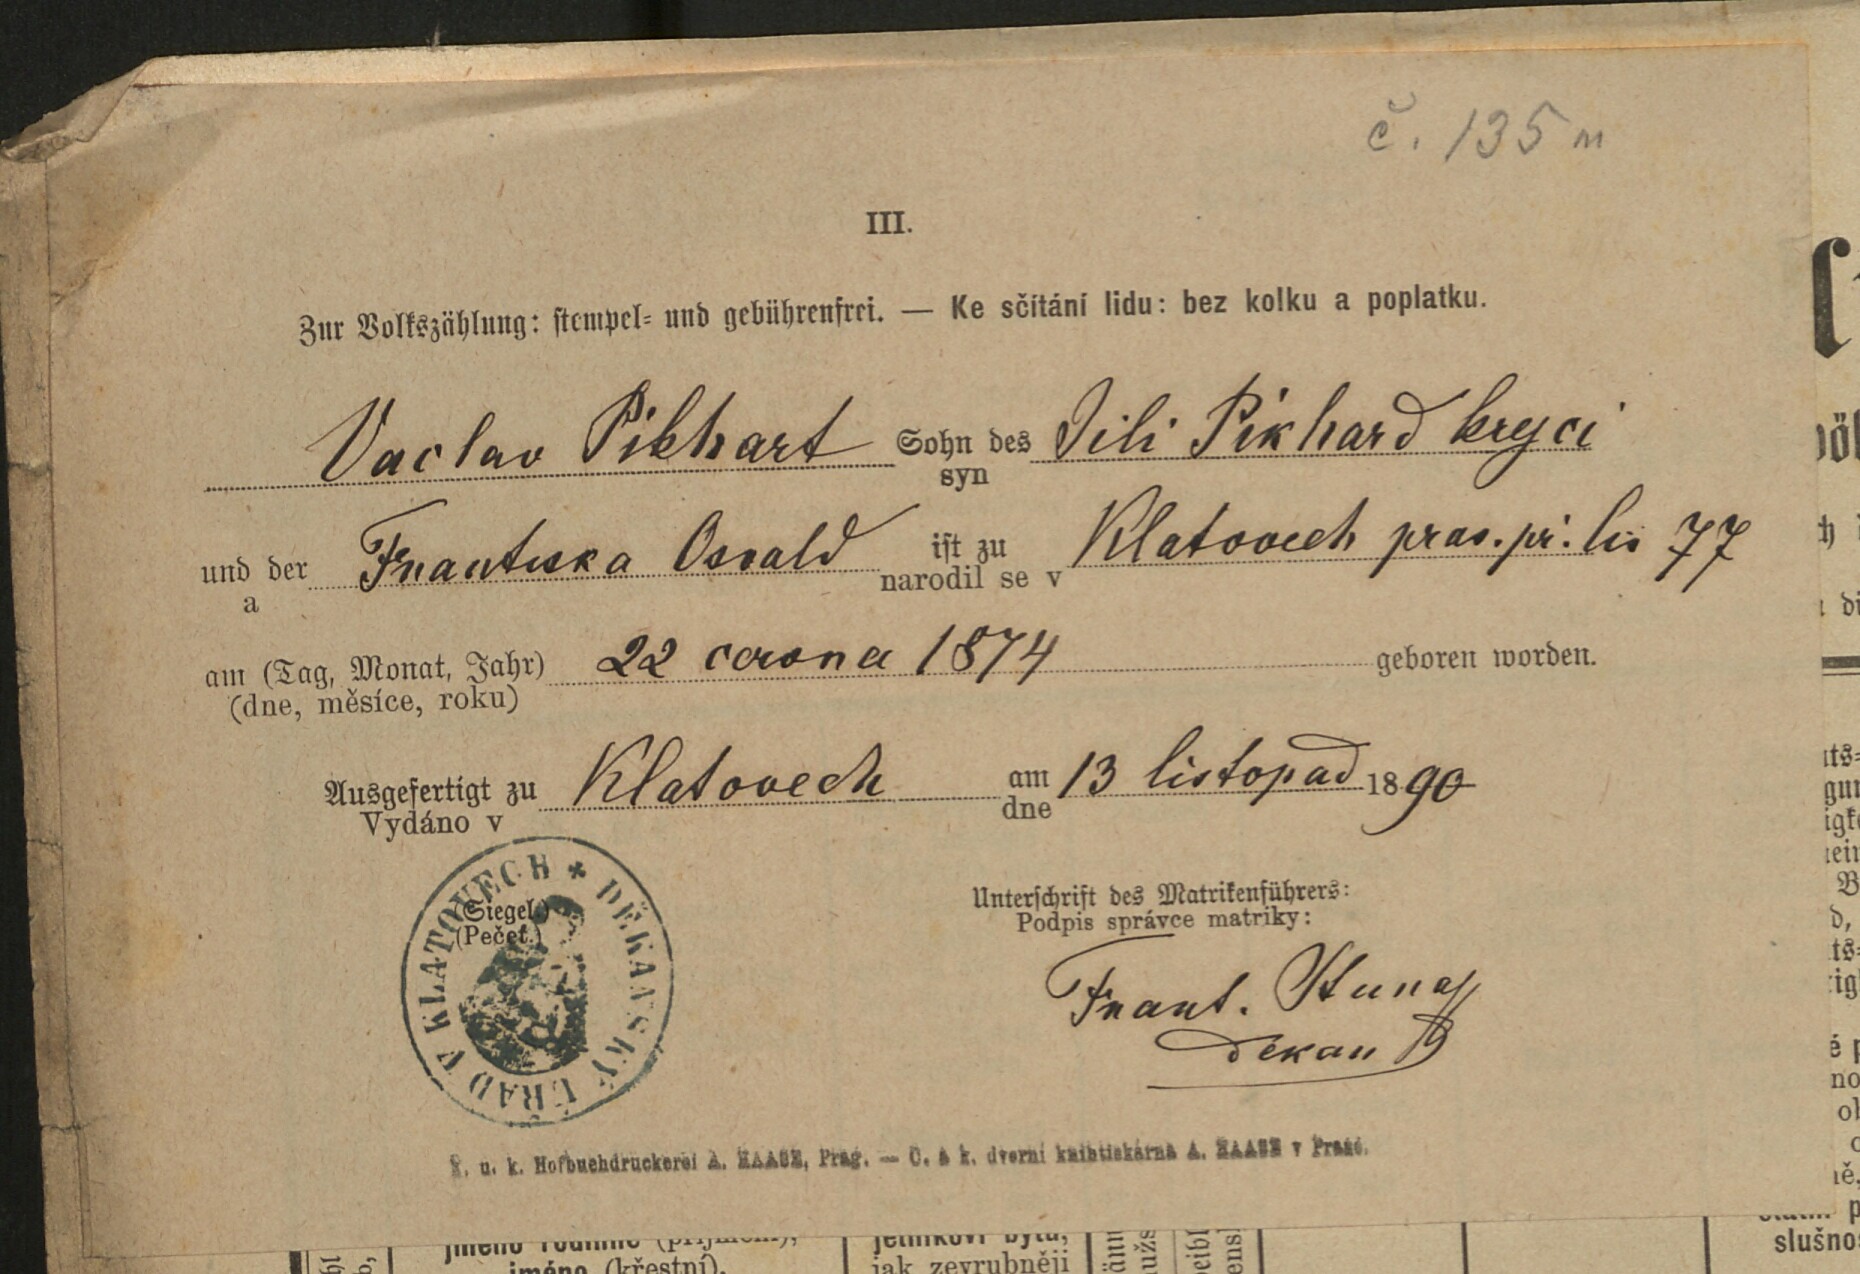 č. 135 m
III.
Zur Volkszählung: stempel- und gebührenfrei. — Ke sčítání lidu: bez kolku a poplatku.
Vaclav Pikhart Sohn des Jili Pikhard kryci
syn
und der Frantiska Osvald ist zu Klatovech pras. př. lis 77
a narodil se v
am (Tag, Monat, Jahr) 22 corona 1874 geboren worden.
(dne, měsíce, roku)
Ausgefertigt zu Klatovech am 13 listopad 1890
Vydáno v dne
(Siegel.)
(Pečeť.)
DĚKANSKÝ ÚŘAD V KLATOVECH
Unterschrift des Matrikenführers:
Podpis správce matriky:
Frant.
děkan
K. u. k. Hofbuchdruckerei A. HAASE, Prag. — C. a k. dvorní knihtiskárna A. HAASE v Praze.
jméno rodinné (příjmení),
jméno (křestní),
jak zevrubněji
slušno